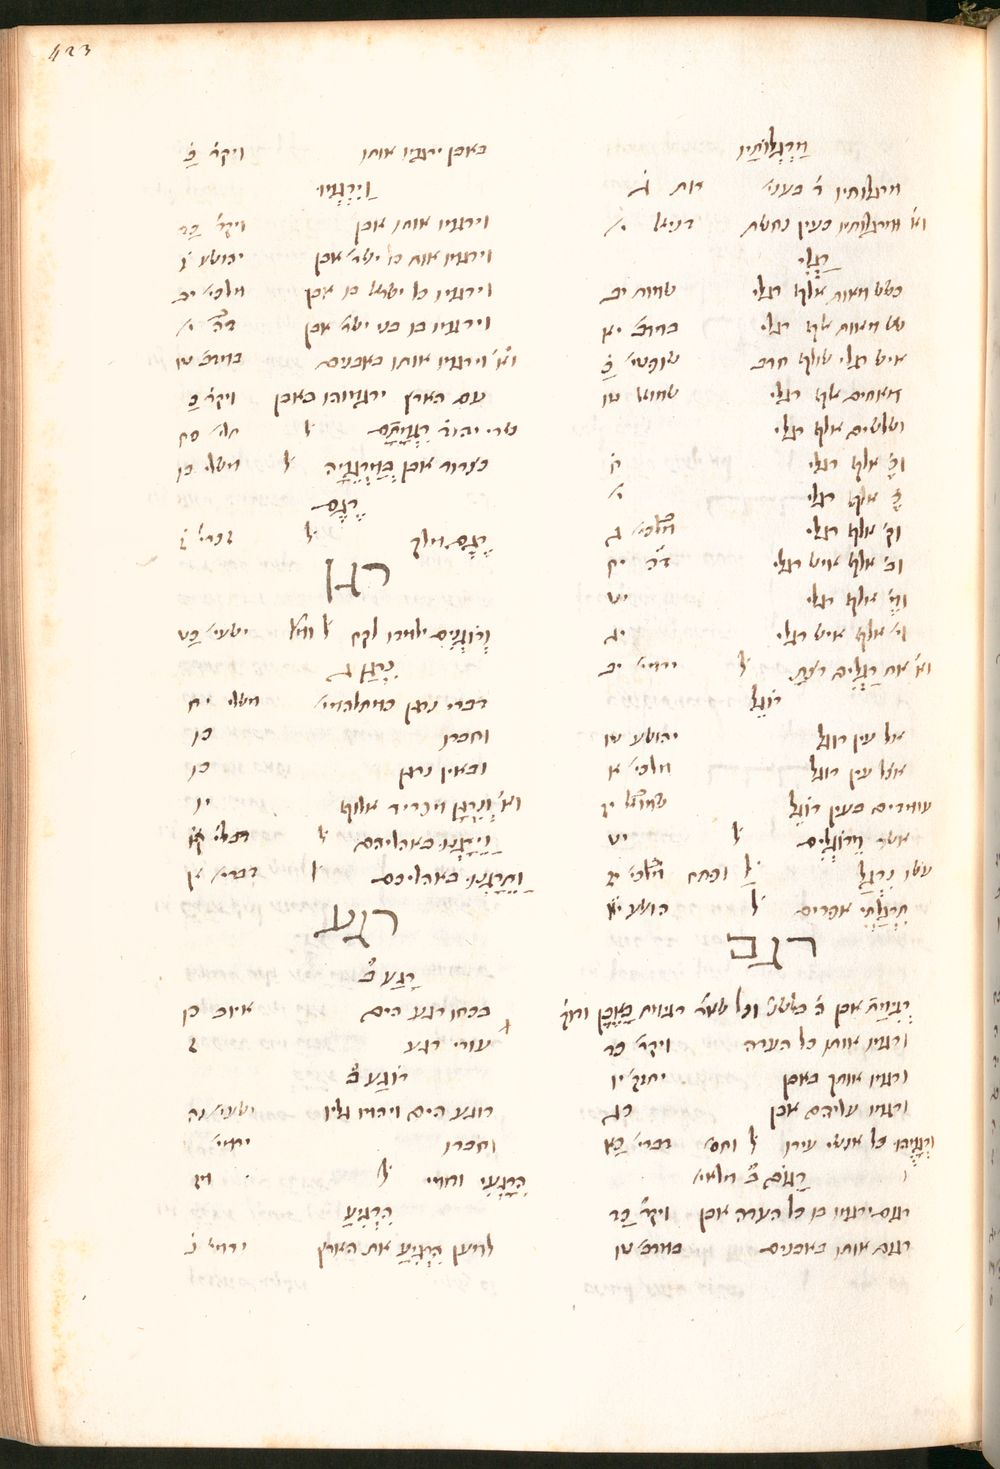 423
מַרְגְּלוֹתָיו
מרגלותיו ד׳ בעני׳ רות ג
וא׳ ומרגלותיו כעין נחשת דניאל י׳
רַגְלִי
כשש מאות אלף רגלי שמות יב
שש מאות אלף רגלי במדב׳ יא
איש רגלי שולף חרב שופטי׳ כ
מאתים אלף רגלי שמואל טו
ושלשים אלף רגלי
וכ׳ אלף רגלי י
אלף רגלי י׳
וק׳ אלף רגלי מלכי׳ ג
וכ׳ אלף איש רגלי דה׳ יח
אלף רגלי יט
ז׳ אלף איש רגלי יג
וא׳ את רַגְלִים רצת ל ירמי׳ יב
רוֹגֵל
אל עין רוגל יהושע טו
אצל עין רוגל מלכי׳ א
עומדים בעין רוגל שמואל יז
אשר מרוגלים ל יט
עשו נרגל ל ובתח מלכי׳ יז
תִרְגַּלְתִּי אפרים ל הושע יא
רגם
ורגמו אותו כל העדה ויקר׳ כד
ורגמו אותך באבן יחזק׳ יו
ורגמו עליהם אבן כג
ורגמהו כל אנשי עירו ל וחס׳ דברי׳ כא
רָגוֹם ב׳ מלאי׳
רגום ירגמו בו כל העדה אבן ויקר׳ כד
רגום אותו באבנים במדב׳ טו
באבן ירגמו אותו ויקר׳ כ
וַיִּרְגְּמוּ
וירגמו אותו אבן ויקר׳ כד
וירגמו אותו כל ישר׳ אבן יהושע ז
וירגמו כל ישראל בו אבן מלכי׳ יב
וירגמו בו בני ישר׳ אבן דה׳ י׳
וא׳ וירגמו אותו באבנים במדב׳ טו
עם הארץ ירגמוהו באבן ויקר׳ כ
שרי יהודה רִגְמָתָם ל תלי׳ סח
כצרור אבן בְּמַרְגֵּמָה ל משלי כו
רֶגֶם
רֶגֶם מלך ל זכרי׳ ז
רגן
וְרוֹגְנִים ילמדו לקח ל ומל׳ ישעי׳ כט
נִרְגָּן ג
דברי נרגן כמתלהמי׳ משלי יח
וחברו כו
ובאין נרגן כו
וא׳ וְנִרְגָּן מפריד אלוף יו
וַיֵּרָגְנוּ באהליהם ל תהלי׳ קו
וַתֵּרָגְנוּ באהליכם ל דברי׳ א
רגע
רָגַע ב׳
בכחו רגע הים איוב כו
עורי רגע ז
רוֹגַע ב׳
רוגע הים ויהמו גליו ישעי׳ נה
וחברו ירמי׳
הִרְגִּיעַ
למען הִרְגִּיעַ את הארץ ירמי׳ נ